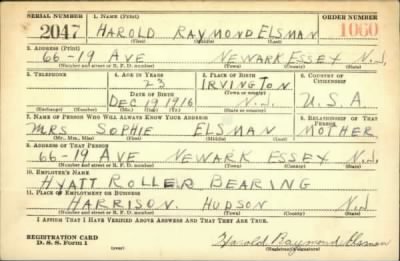 SERIAL NUMBER 1. NAME (Print) ORDER NUMBER
2047 HAROLD RAYMOND ELSMAN 1060
(First) (Middle) (Last)
2. ADDRESS (Print)
66-19 AVE NEWARK ESSEX N.J.
(Number and street or R. F. D. number) (Town) (County) (State)
3. TELEPHONE 4. AGE IN YEARS 5. PLACE OF BIRTH 6. COUNTRY OF CITIZENSHIP
23 IRVINGTON
(Town or county)
DATE OF BIRTH
DEC 19 1916 N.J. U.S.A.
(Exchange) (Number) (Mo.) (Day) (Yr.) (State or country)
7. NAME OF PERSON WHO WILL ALWAYS KNOW YOUR ADDRESS 8. RELATIONSHIP OF THAT PERSON
MRS. SOPHIE ELSMAN MOTHER
(Mr., Mrs., Miss) (First) (Middle) (Last)
9. ADDRESS OF THAT PERSON
66-19 AVE NEWARK ESSEX N.J.
(Number and street or R. F. D. number) (Town) (County) (State)
10. EMPLOYER'S NAME
HYATT ROLLER BEARING
11. PLACE OF EMPLOYMENT OR BUSINESS
HARRISON HUDSON N.J.
(Number and street or R. F. D. number) (Town) (County) (State)
I AFFIRM THAT I HAVE VERIFIED ABOVE ANSWERS AND THAT THEY ARE TRUE.
REGISTRATION CARD
D. S. S. Form 1 (over) Harold Raymond Elsman
(Registrant's signature)